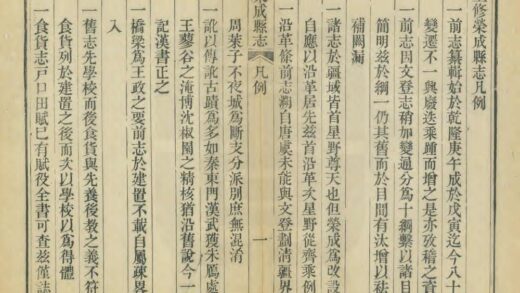 修榮成縣志凡例
一前志纂輯始於乾隆庚午成於戊寅迄今八十
變遷不一與廢迭乘踵而增之是亦攷稽之資
一前志因文登志稍加變通分爲十綱繫以諸目
簡明茲於綱一仍其舊而於目間有汰增以祛
補闕漏
一諸志於疆域皆首星野尊天也但榮成爲改設
自應以沿革居先茲首沿革次星野從齊乘例
一沿革條前志溯自唐虞未能與文登劃清疆界
榮成縣志 凡例 一
周萊子不夜城爲斷支分派別庶無混淆
一訛以傳訛古蹟爲多如秦東門漢武獲朱鴈處
王蓼谷之淹博沈椒園之精核猶沿舊說今一
記漢書正之
一橋梁爲王政之要前志於建置不載自屬疎畧
入
一舊志先學校而後食貨與先養後教之義不符
食貨列於建置之後而次以學校以爲得體
一食貨志戶口田賦已有賦役全書可查茲僅誌